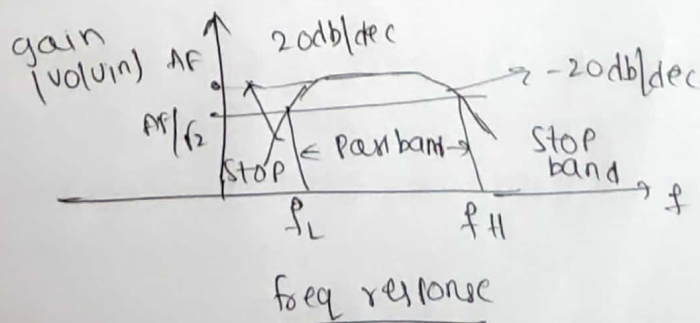 gain
|vo/vin)
AF
20db/dec
-20db/dec
AF/√2
Stop
< Passband →
Stop
band
f
fL
fH
freq response